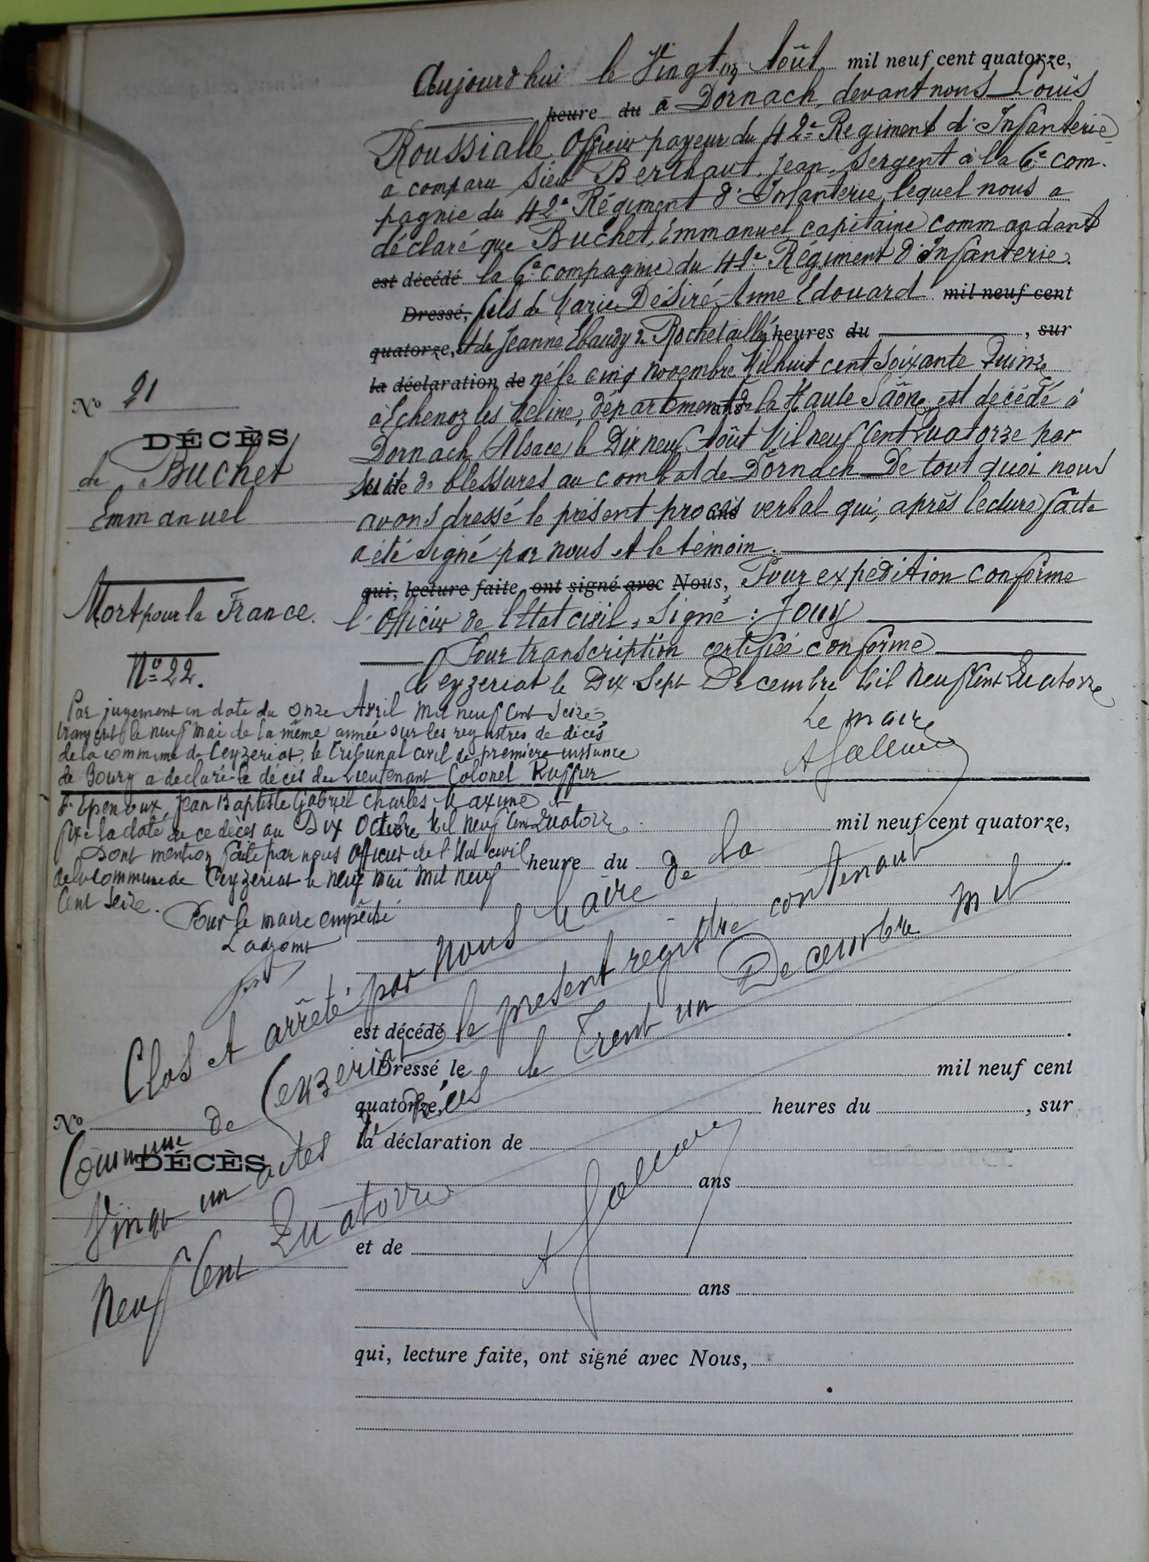 Aujourd'hui le Vingt Août mil neuf cent quatorze,
heure du à Dornach, devant nous Louis
Roussialle Officier payeur du 42e Régiment d'Infanterie
a comparu Sieur Berthaut, Jean, Sergent à la 6e com-
pagnie du 42e Régiment d'Infanterie, lequel nous a
déclaré que Buchet, Emmanuel, capitaine commandant
est décédé la 6e compagnie du 42e Régiment d'Infanterie.
Dressé, fils de Marie Désiré Anne Edouard mil neuf cent
quatorze, et de Jeanne Ebaudy de Rochetaillé heures du , sur
la déclaration de né le cinq novembre Mil huit cent soixante Quinze
à Echenoz les Meline, département de la Haute Saône est décédé à
Dornach (Alsace) le Dix neuf Août Mil neuf Cent Quatorze par
suite de blessures au combat de Dornach. De tout quoi nous
avons dressé le présent procès verbal qui, après lecture faite
a été signé par nous et le témoin.
qui, lecture faite, ont signé avec Nous, Pour expédition conforme
l'Officier de l'Etat civil, Signé : Jouy
Pour transcription certifiée conforme
Ceyzeriat le Dix Sept Decembre Mil neuf Cent Quatorze
Le maire
No 21
DÉCÈS
de Buchet
Emmanuel
Mort pour la France.
No 22.
Par jugement en date du onze Avril Mil neuf Cent Seize,
transcrit le neuf mai de la même année sur les registres de décès
de la commune de Ceyzeriat, le tribunal civil de première instance
de Bourg a déclaré le décès du Lieutenant Colonel Ruffier
d'Epenoux, Jean Baptiste Gabriel Charles Maxime et
fixe la date de ce décès au Dix Octobre Mil neuf Cent Quatorze
Dont mention faite par nous Officier de l'Etat civil
de la commune de Ceyzeriat le neuf mai mil neuf
Cent Seize.
Pour le maire empêché
L'adjoint
mil neuf cent quatorze,
heure du
est décédé
Dressé, le mil neuf cent
quatorze, heures du , sur
la déclaration de
ans
et de
ans
qui, lecture faite, ont signé avec Nous,
No
DÉCÈS
Clos et arrêté par nous Maire de la
Commune de Ceyzeriat le présent registre contenant
Vingt un actes de décès le Trent un Decembre Mil
Neuf Cent Quatorze